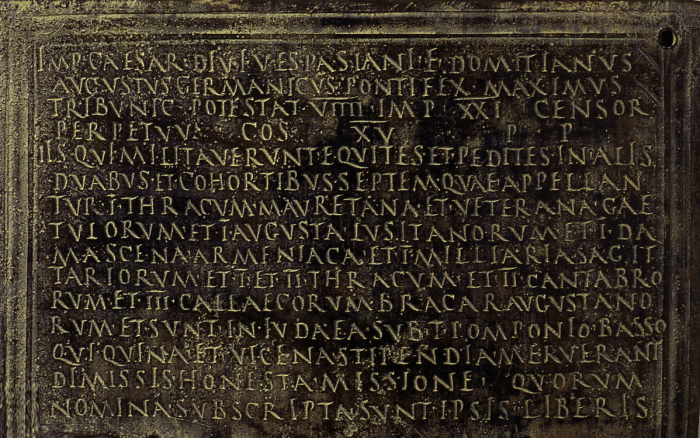 IMP·CAESAR·DIVI·VESPASIANI·F·DOMITIANVS
AVGVSTVS GERMANICVS·PONTIFEX MAXIMVS
TRIBVNIC POTESTAT·VIIII IMP·XXI CENSOR
PERPETVVS COS XV P P
IIS QVI MILITAVERVNT EQVITES ET PEDITES IN ALIS
DVABVS·ET COHORTIBVS·SEPTEM QVAE APPELLAN
TVR·I·THRACVM·MAVRETANA·ET VETERANA·GAE
TVLORVM ET I·AVGVSTA LVSITANORVM ET·I·DA
MASCENA ARMENIACA·ET I MILLIARIA SAGIT
TARIORVM ET I·ET·II·THRACVM·ET II CANTABRO
RVM·ET III·CALLAECORVM·BRACARAVGVSTANO
RVM ET SVNT IN·IVDAEA·SVB T·POMPONIO·BASSO
QVI QVINA ET VICENA STIPENDIA MERVERANT
DIMISSIS HONESTA MISSIONE QVORVM
NOMINA SVBSCRIPTA SVNT IPSIS LIBERIS